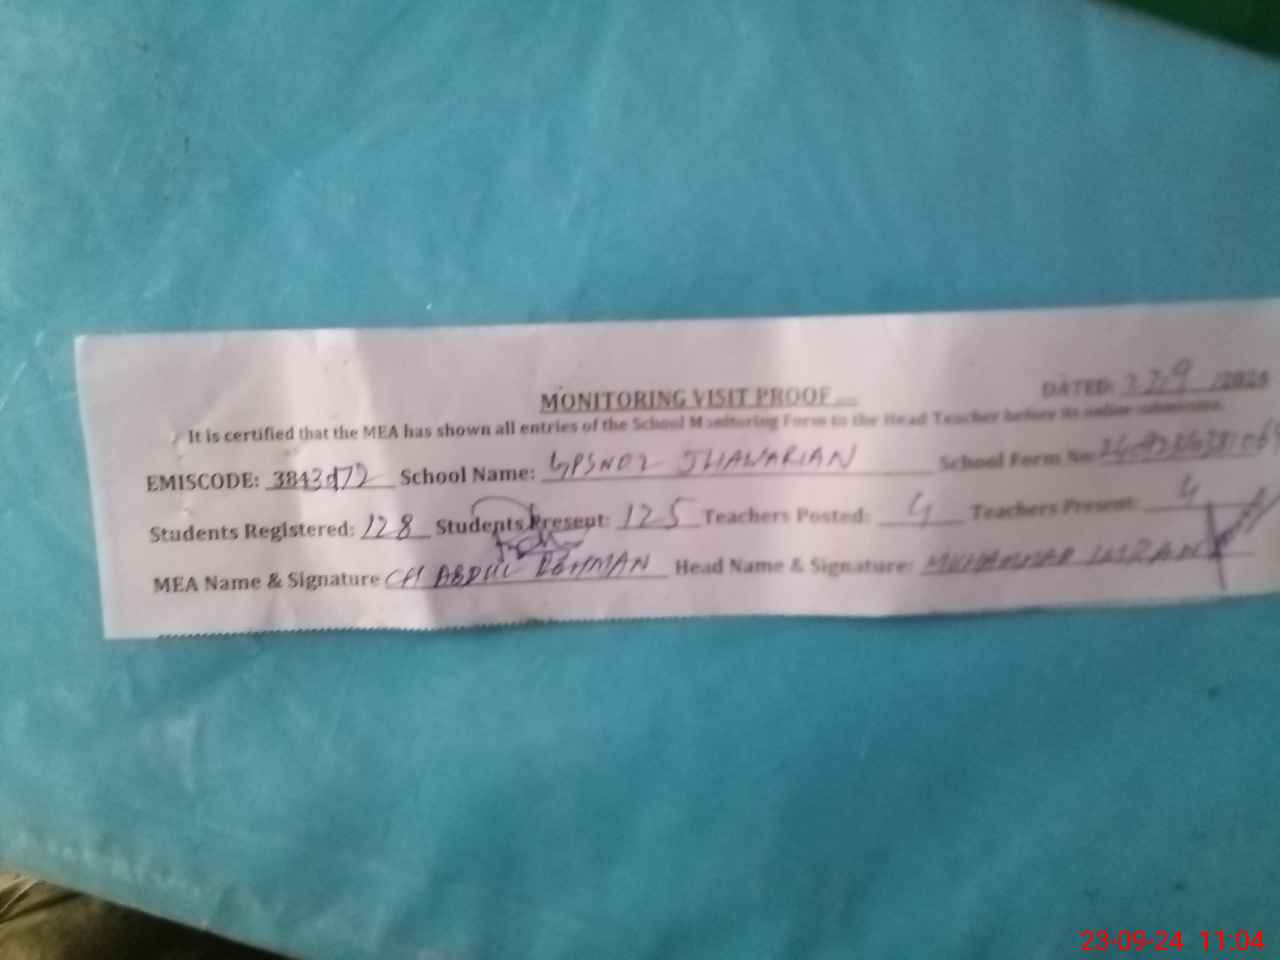 MONITORING VISIT PROOF
DATED:
It is certified that the MEA has shown all entries of the School Monitoring Form to the Head Teacher before its online submission.
EMISCODE: School Name: GPSNO2 JHAWARIAN School Form No:
Students Registered: 128 Students Present: 125 Teachers Posted: 4 Teachers Present: 4
MEA Name & Signature CH ABDUL REHMAN Head Name & Signature: MUHAMMAD IMRAN
23-09-24 11:04